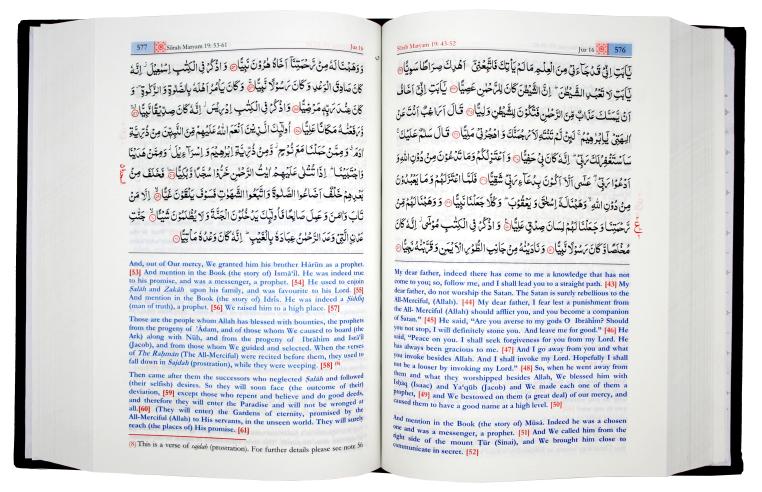 Sūrah Maryam 19: 43-52 Juz 16 576
يٰۤاَبَتِ اِنِّيْ قَدْ جَآءَنِيْ مِنَ الْعِلْمِ مَا لَمْ يَاْتِكَ فَاتَّبِعْنِيْۤ اَهْدِكَ صِرَاطًا سَوِيًّا
يٰۤاَبَتِ لَا تَعْبُدِ الشَّيْطٰنَ ؕ اِنَّ الشَّيْطٰنَ كَانَ لِلرَّحْمٰنِ عَصِيًّا يٰۤاَبَتِ اِنِّيْۤ اَخَافُ
اَنْ يَّمَسَّكَ عَذَابٌ مِّنَ الرَّحْمٰنِ فَتَكُوْنَ لِلشَّيْطٰنِ وَلِيًّا قَالَ اَرَاغِبٌ اَنْتَ عَنْ
اٰلِهَتِيْ يٰۤاِبْرٰهِيْمُ ۚ لَئِنْ لَّمْ تَنْتَهِ لَاَرْجُمَنَّكَ وَاهْجُرْنِيْ مَلِيًّا قَالَ سَلٰمٌ عَلَيْكَ ۚ
سَاَسْتَغْفِرُ لَكَ رَبِّيْ ؕ اِنَّهٗ كَانَ بِيْ حَفِيًّا وَاَعْتَزِلُكُمْ وَمَا تَدْعُوْنَ مِنْ دُوْنِ اللّٰهِ وَ
اَدْعُوْا رَبِّيْ ۖ عَسٰۤى اَلَّاۤ اَكُوْنَ بِدُعَآءِ رَبِّيْ شَقِيًّا فَلَمَّا اعْتَزَلَهُمْ وَمَا يَعْبُدُوْنَ
مِنْ دُوْنِ اللّٰهِ ۙ وَهَبْنَا لَهٗۤ اِسْحٰقَ وَيَعْقُوْبَ ؕ وَكُلًّا جَعَلْنَا نَبِيًّا وَوَهَبْنَا لَهُمْ مِّنْ
رَّحْمَتِنَا وَجَعَلْنَا لَهُمْ لِسَانَ صِدْقٍ عَلِيًّا وَاذْكُرْ فِي الْكِتٰبِ مُوْسٰۤى اِنَّهٗ كَانَ
مُخْلَصًا وَّكَانَ رَسُوْلًا نَّبِيًّا وَنَادَيْنٰهُ مِنْ جَانِبِ الطُّوْرِ الْاَيْمَنِ وَقَرَّبْنٰهُ نَجِيًّا
My dear father, indeed there has come to me a knowledge that has not
come to you; so, follow me, and I shall lead you to a straight path. [43] My
dear father, do not worship the Satan. The Satan is surely rebellious to the
All-Merciful, (Allah). [44] My dear father, I fear lest a punishment from
the All-Merciful (Allah) should afflict you, and you become a companion
of Satan." [45] He said, "Are you averse to my gods O Ibrāhīm? Should
you not stop, I will definitely stone you. And leave me for good." [46] He
said, "Peace on you. I shall seek forgiveness for you from my Lord. He
has always been gracious to me. [47] And I go away from you and what
you invoke besides Allah. And I shall invoke my Lord. Hopefully I shall
not be a looser by invoking my Lord." [48] So, when he went away from
them and what they worshipped besides Allah, We blessed him with
Isḥāq (Isaac) and Ya'qūb (Jacob) and We made each one of them a
prophet, [49] and We bestowed on them (a great deal) of our mercy, and
caused them to have a good name at a high level. [50]
And mention in the Book (the story of) Mūsā. Indeed he was a chosen
one and was a messenger, a prophet. [51] And We called him from the
right side of the mount Ṭūr (Sinai), and We brought him close to
communicate in secret. [52]
577 Sūrah Maryam 19: 53-61 Juz 16
وَوَهَبْنَا لَهٗ مِنْ رَّحْمَتِنَاۤ اَخَاهُ هٰرُوْنَ نَبِيًّا وَاذْكُرْ فِي الْكِتٰبِ اِسْمٰعِيْلَ ؗ اِنَّهٗ
كَانَ صَادِقَ الْوَعْدِ وَكَانَ رَسُوْلًا نَّبِيًّا وَكَانَ يَاْمُرُ اَهْلَهٗ بِالصَّلٰوةِ وَالزَّكٰوةِ ۪ وَ
كَانَ عِنْدَ رَبِّهٖ مَرْضِيًّا وَاذْكُرْ فِي الْكِتٰبِ اِدْرِيْسَ ؗ اِنَّهٗ كَانَ صِدِّيْقًا نَّبِيًّا
وَّرَفَعْنٰهُ مَكَانًا عَلِيًّا اُولٰٓئِكَ الَّذِيْنَ اَنْعَمَ اللّٰهُ عَلَيْهِمْ مِّنَ النَّبِيّٖنَ مِنْ ذُرِّيَّةِ
اٰدَمَ ۗ وَمِمَّنْ حَمَلْنَا مَعَ نُوْحٍ ؗ وَّمِنْ ذُرِّيَّةِ اِبْرٰهِيْمَ وَاِسْرَآءِيْلَ ؗ وَمِمَّنْ هَدَيْنَا
وَاجْتَبَيْنَا ؕ اِذَا تُتْلٰى عَلَيْهِمْ اٰيٰتُ الرَّحْمٰنِ خَرُّوْا سُجَّدًا وَّبُكِيًّا فَخَلَفَ مِنْ
بَعْدِهِمْ خَلْفٌ اَضَاعُوا الصَّلٰوةَ وَاتَّبَعُوا الشَّهَوٰتِ فَسَوْفَ يَلْقَوْنَ غَيًّا اِلَّا مَنْ
تَابَ وَاٰمَنَ وَعَمِلَ صَالِحًا فَاُولٰٓئِكَ يَدْخُلُوْنَ الْجَنَّةَ وَلَا يُظْلَمُوْنَ شَيْـًٔا جَنّٰتِ
عَدْنِ ۨالَّتِيْ وَعَدَ الرَّحْمٰنُ عِبَادَهٗ بِالْغَيْبِ ؕ اِنَّهٗ كَانَ وَعْدُهٗ مَاْتِيًّا
And, out of Our mercy, We granted him his brother Hārūn as a prophet.
[53] And mention in the Book (the story of) Ismā'īl. He was indeed true
to his promise, and was a messenger, a prophet. [54] He used to enjoin
Ṣalāh and Zakāh upon his family, and was favourite to his Lord. [55]
And mention in the Book (the story of) Idrīs. He was indeed a Ṣiddīq
(man of truth), a prophet. [56] We raised him to a high place. [57]
Those are the people whom Allah has blessed with bounties, the prophets
from the progeny of 'Ādam, and of those whom We caused to board (the
Ark) along with Nūḥ, and from the progeny of Ibrāhīm and Isrā'īl
(Jacob), and from those whom We guided and selected. When the verses
of The Raḥmān (The All-Merciful) were recited before them, they used to
fall down in Sajdah (prostration), while they were weeping. [58] (8)
Then came after them the successors who neglected Ṣalāh and followed
(their selfish) desires. So they will soon face (the outcome of their)
deviation, [59] except those who repent and believe and do good deeds,
and therefore they will enter the Paradise and will not be wronged at
all,[60] (They will enter) the Gardens of eternity, promised by the
All-Merciful (Allah) to His servants, in the unseen world. They will surely
reach (the places of) His promise. [61]
(8) This is a verse of sajdah (prostration). For further details please see note 56